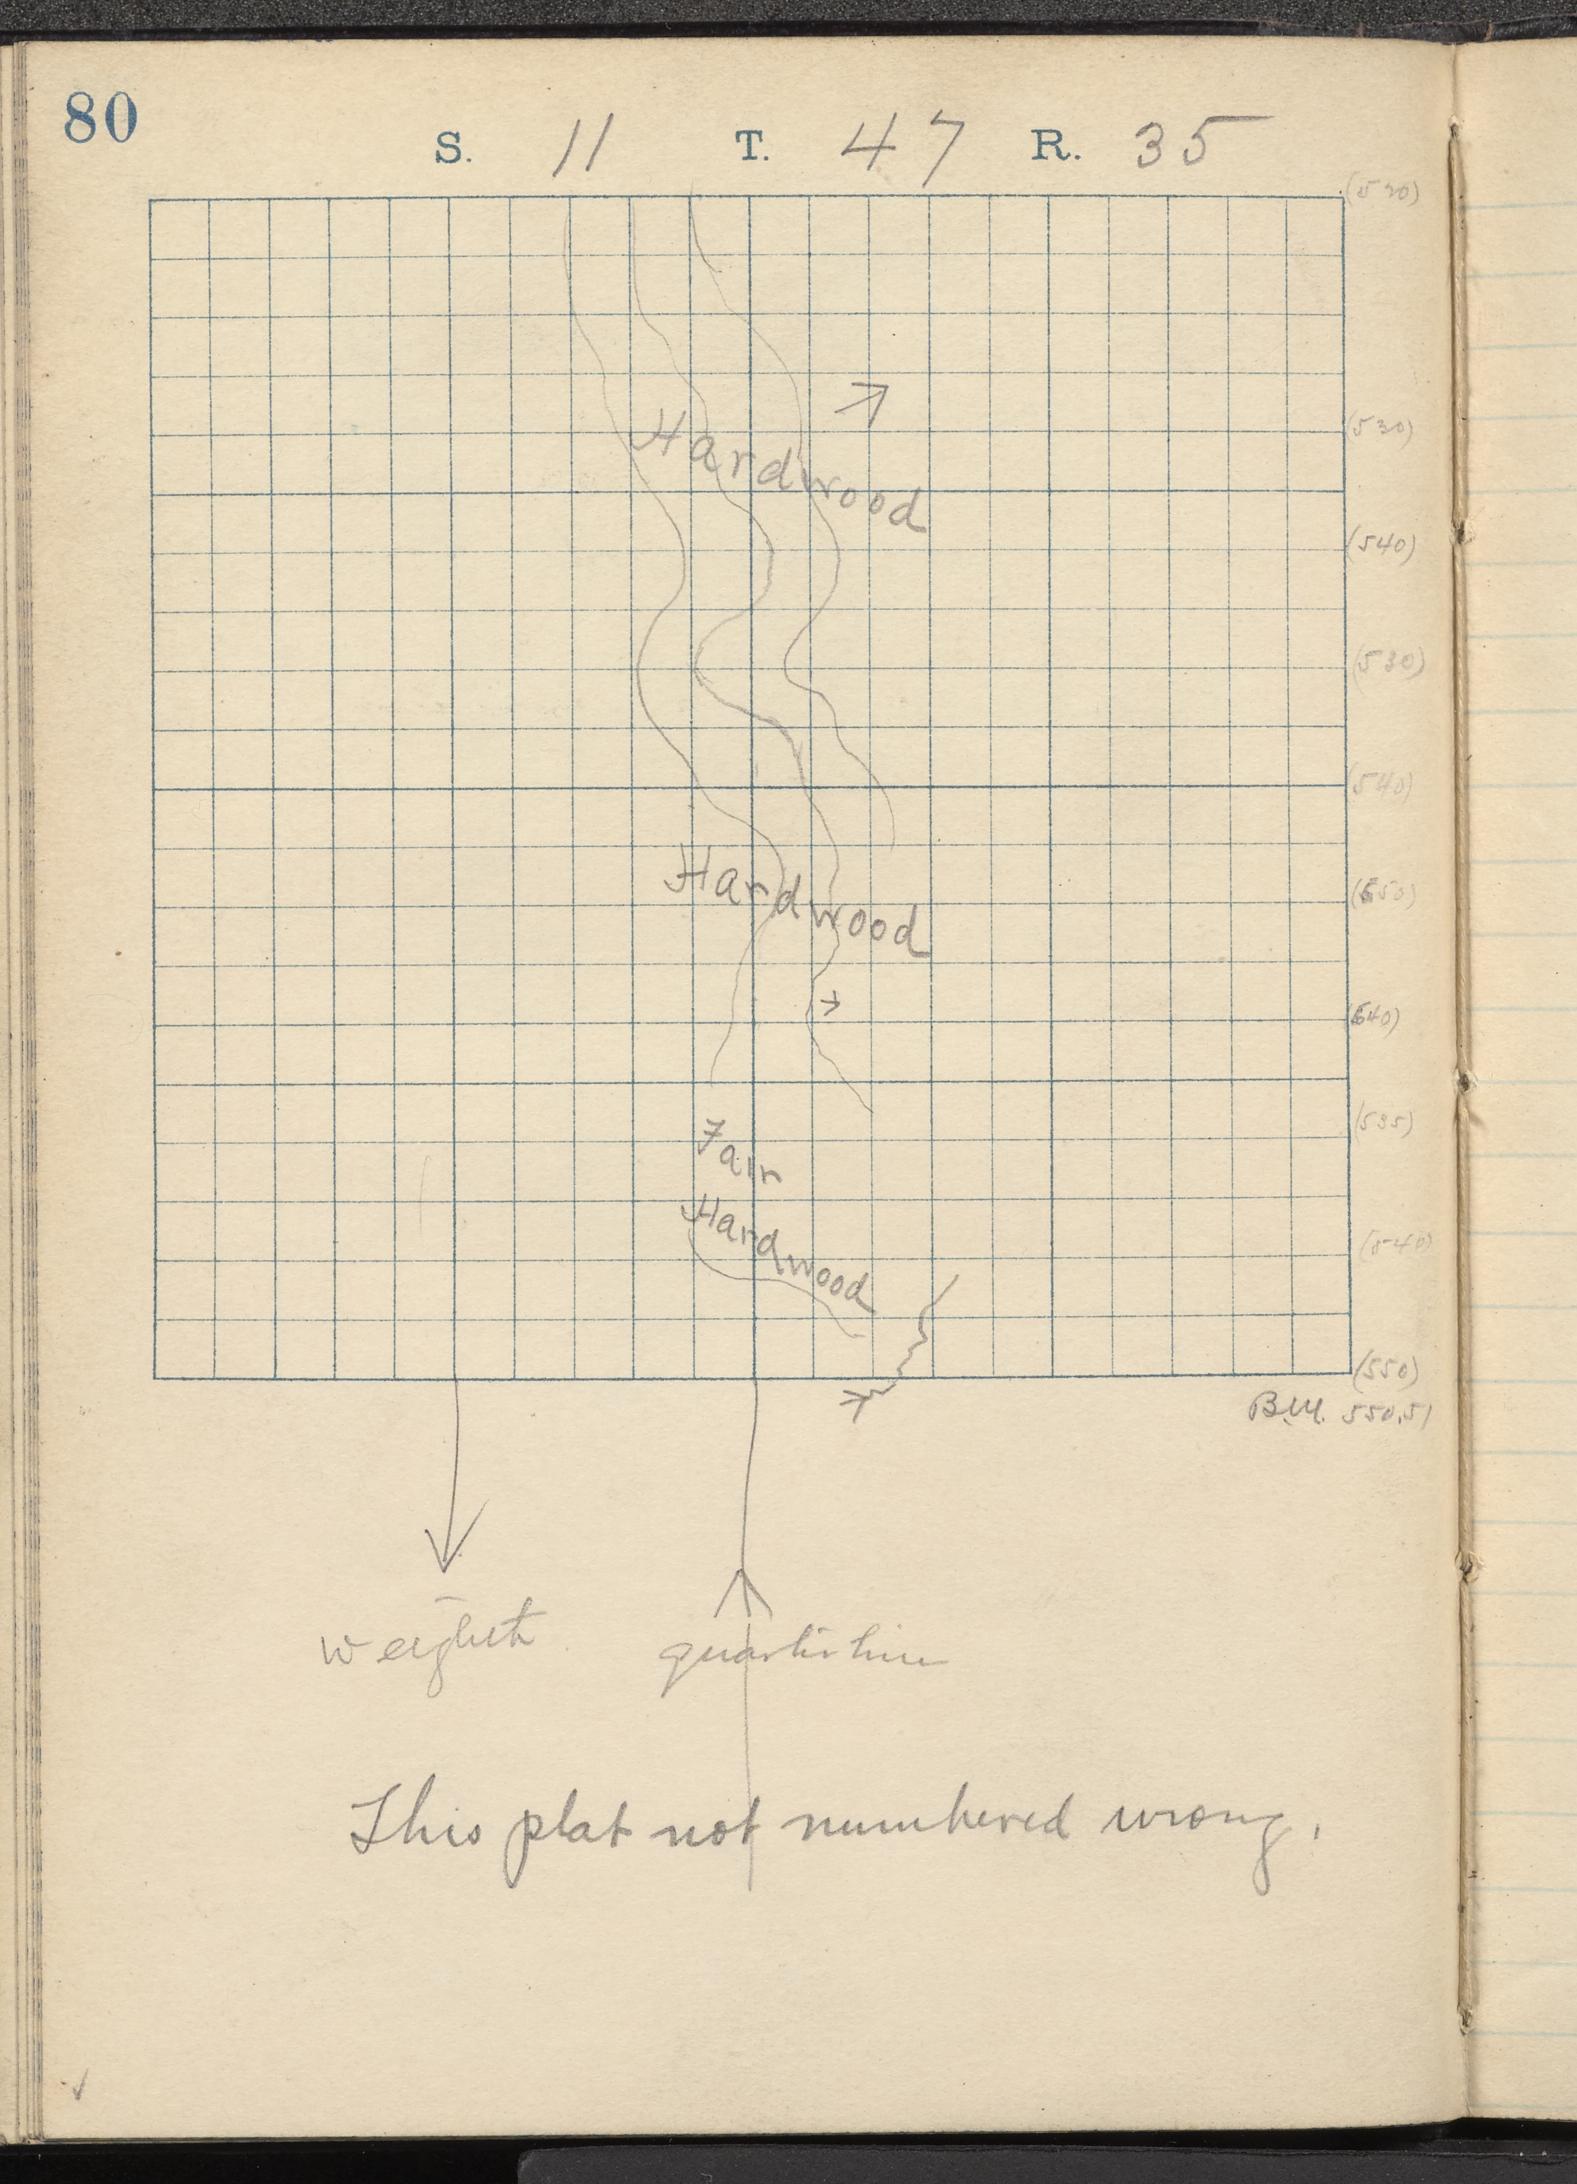 80
S. 11 T. 47 R. 35
(520)
(530)
Hardwood
(540)
(530)
(540)
Hardwood
(550)
(540)
(535)
Fair
Hardwood
(540)
(550)
B.M. 550.51
W eighth
quarter line
This plat not numbered wrong.